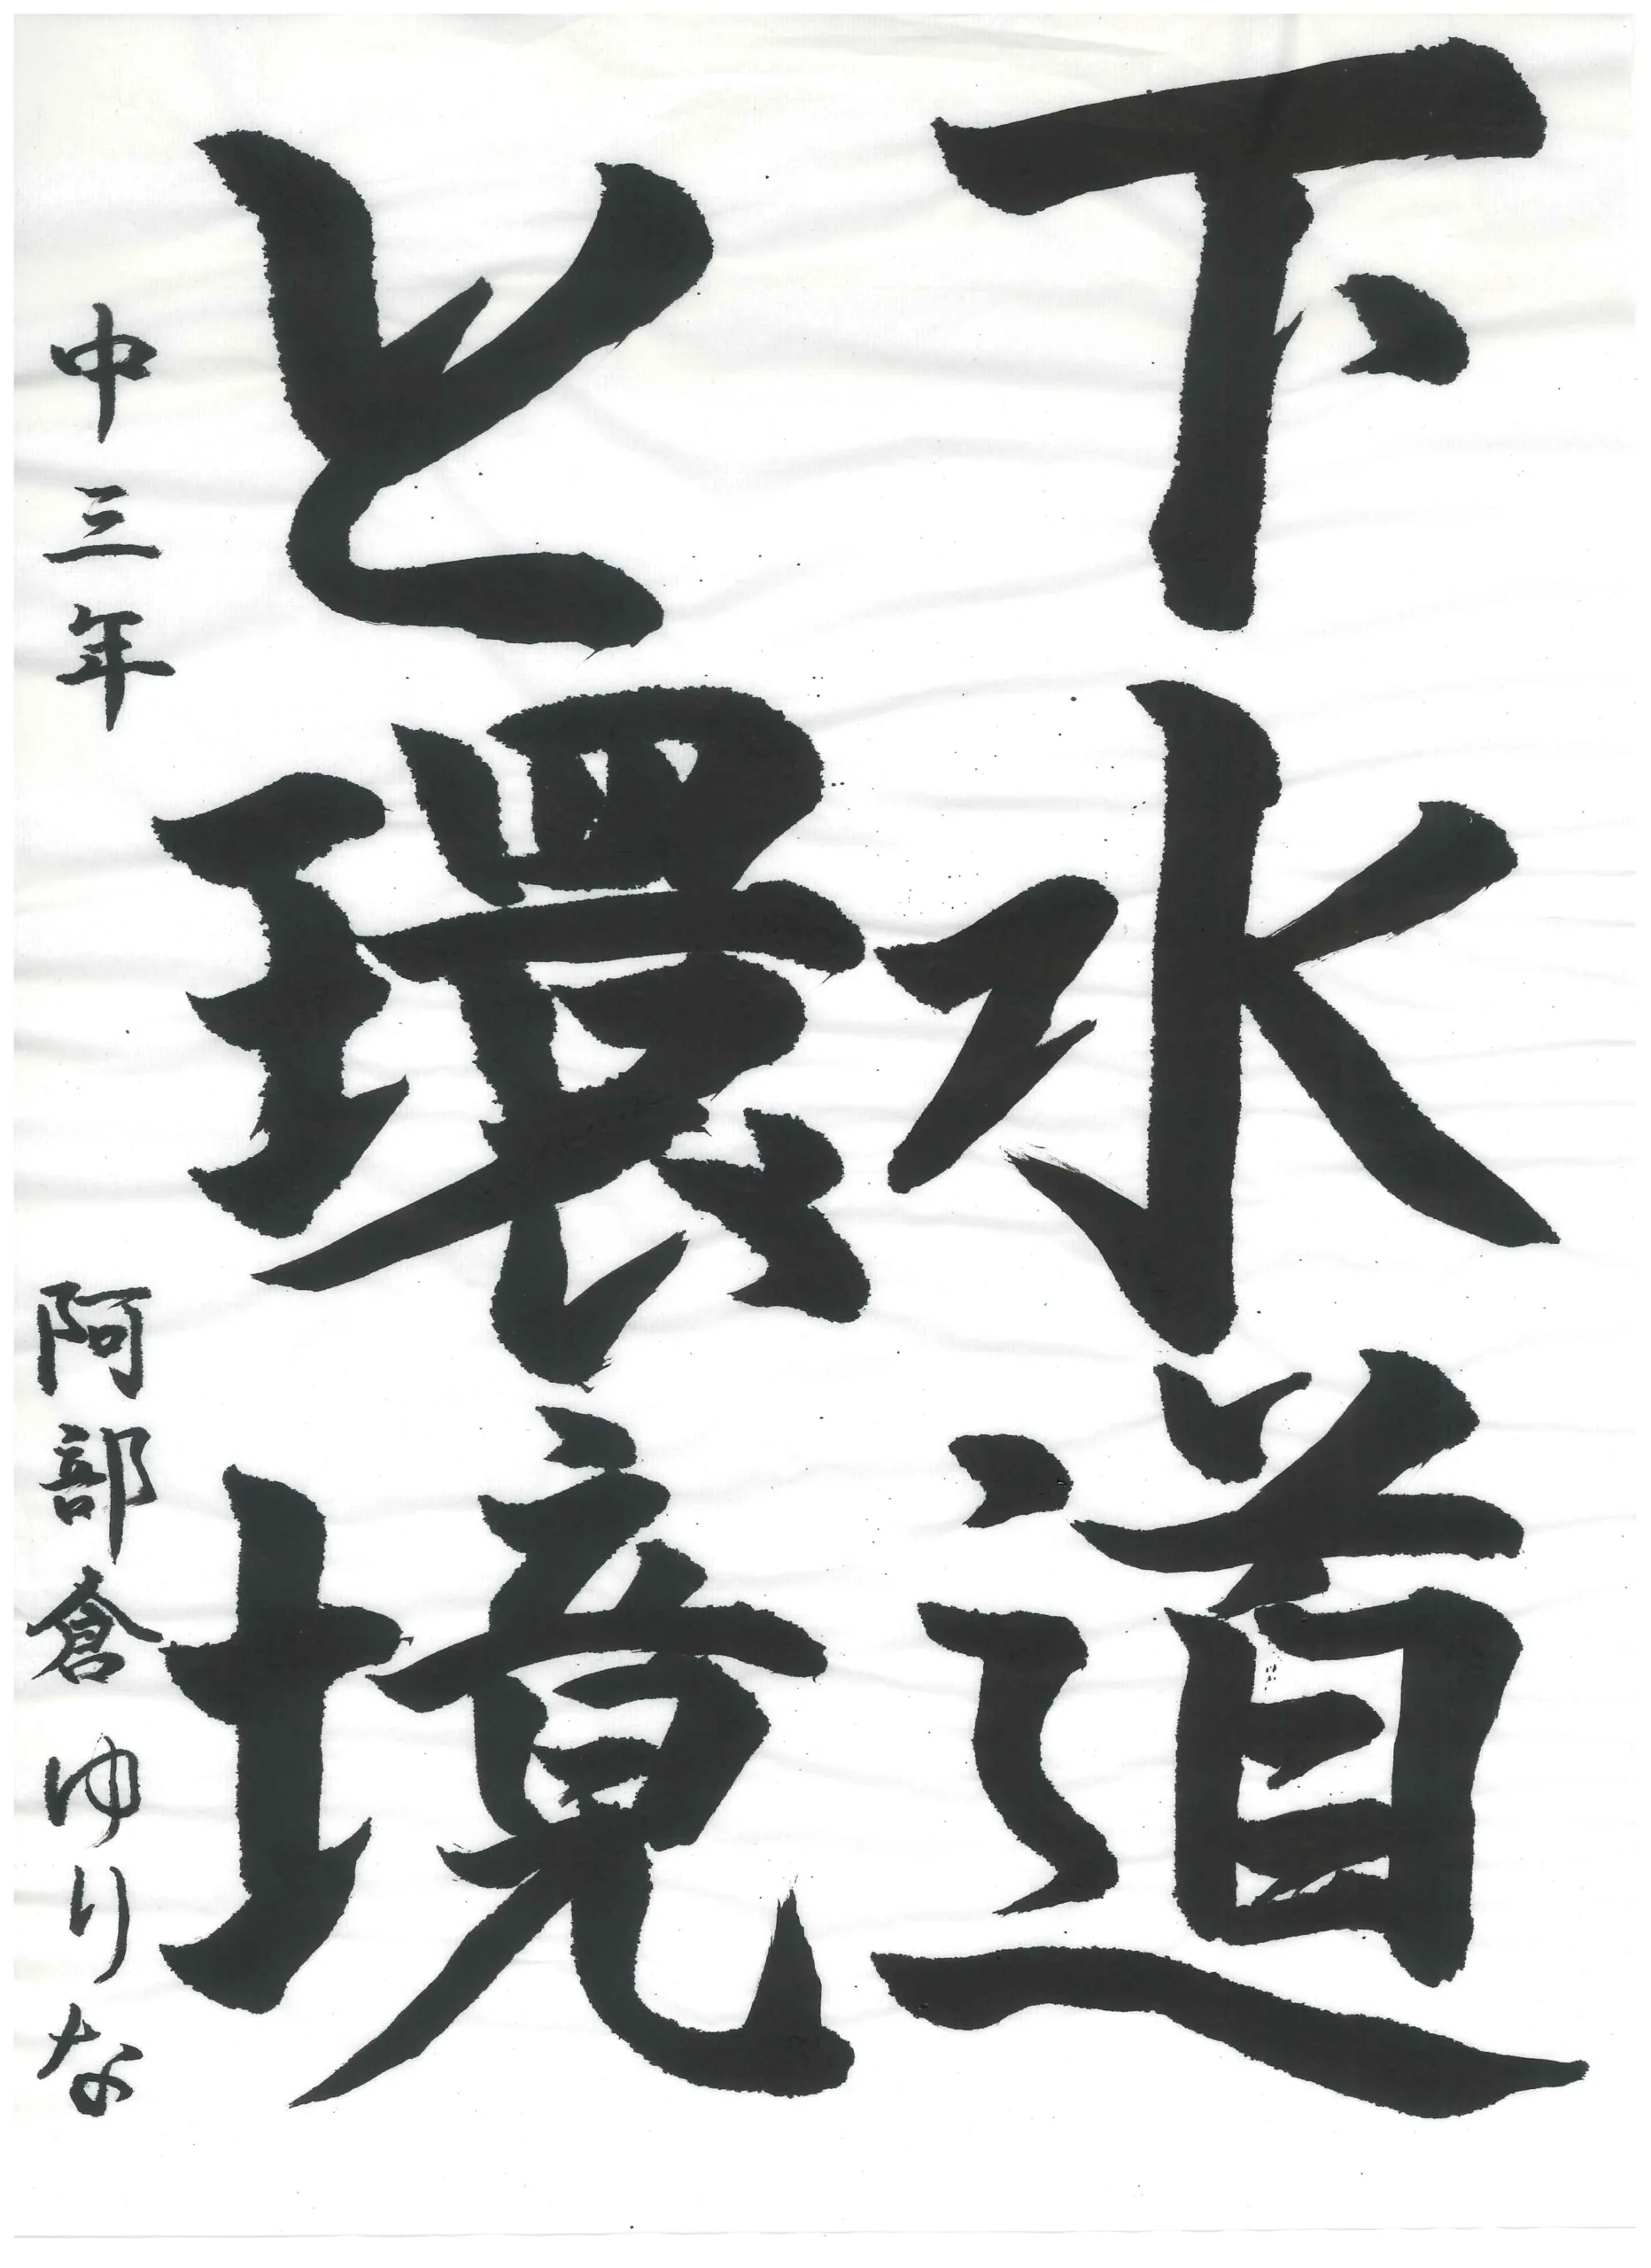 下水道
と環境
中三年 阿部倉ゆりな